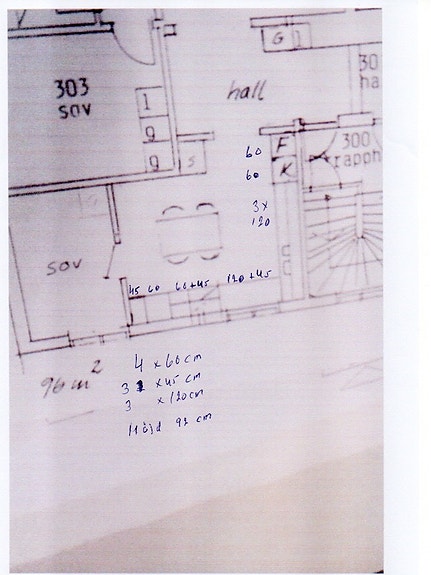 G 1
303
sov
hall
30
ha
1
g
g
s
60
F
300
trapph
60
K
3x
120
sov
45 60 60+45 120+45
96 m²
4 x 60 cm
3 x 45 cm
3 x 120 cm
Höjd 92 cm